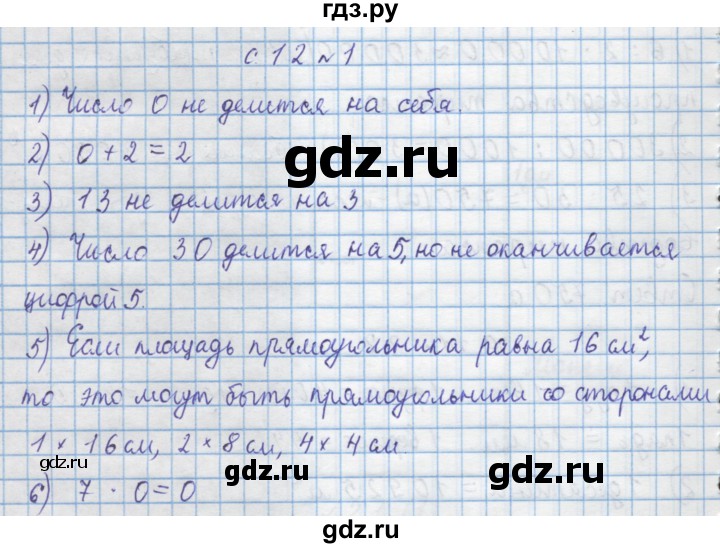 гдз.ру
с. 12 № 1
1) Число 0 не делится на себя.
gdz.ru
2) 0 + 2 = 2
3) 13 не делится на 3
4) Число 30 делится на 5, но не оканчивается
цифрой 5.
gdz.ru
5) Если площадь прямоугольника равна 16 см²,
то это могут быть прямоугольники со сторонами
1 × 16 см, 2 × 8 см, 4 × 4 см.
gdz.ru
gdz.ru
6) 7 · 0 = 0
gdz.ru